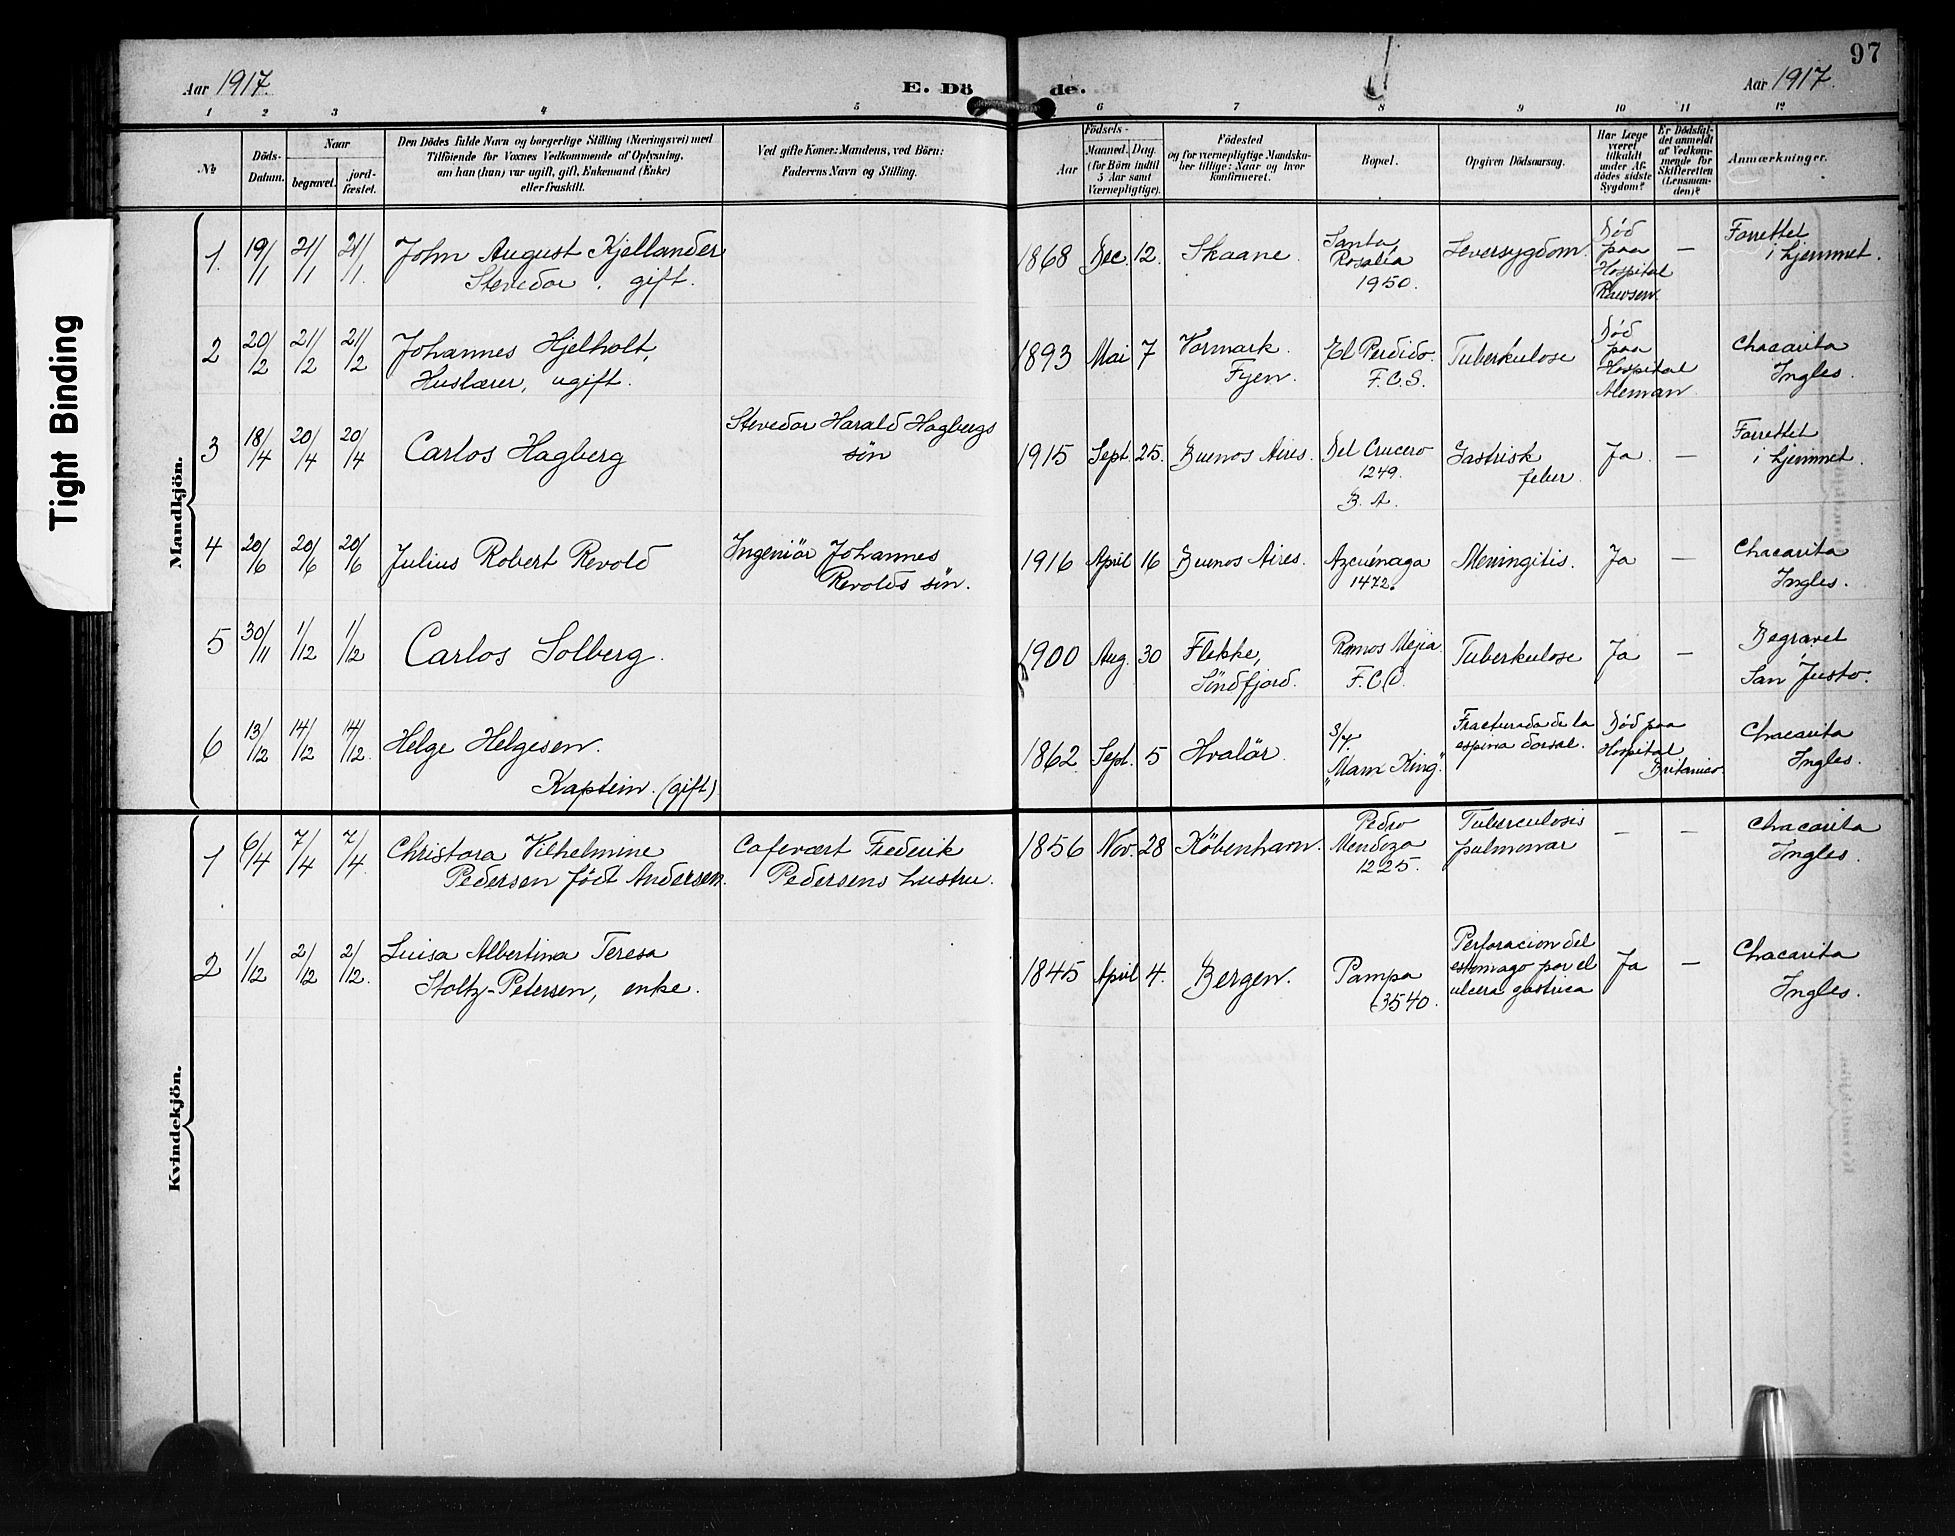 97
Aar 1917.
E. Dö
de.
Aar 1917.
1 2 3 4 5 6 7 8 9 10 11 12
No
Döds-Datum.
Naar
begravet.
jord-fæstet.
Den Dödes fulde Navn og borgerlige Stilling (Næringsvei) med
Tilföiende for Voxnes Vedkommende af Oplysning,
om han (hun) var ugift, gift, Enkemand (Enke)
eller fraskilt.
Ved gifte Koner: Mandens, ved Börn:
Faderens Navn og Stilling.
Aar
Födsels-
Maaned. Dag.
(for Börn indtil
5 Aar samt
Værnepligtige).
Födested
og for værnepligtige Mandskaber tillige: Naar og hvor
konfirmeret.
Bopæl.
Opgiven Dödsaarsag.
Har Læge
været
tilkaldt
under Afdödes sidste
Sygdom?
Er Dödsfaldet anmeldt
af Vedkommende for
Skifteretten
(Lensmanden)?
Anmærkninger.
Mandkjön.
1. 19/1 21/1 21/1. John August Kjellander
Stevedor. gift.
1868 Dec. 12. Skaane.
Santa
Rosalia
1950.
Leversygdom.
Död
paa
Hospital
Rawson
—
Forrettet
i hjemmet.
2 20/2 21/2 21/2 Johannes Hjelholt,
Huslærer, ugift.
1893 Mai 7 Vormark
Fyen.
El Perdido.
F.C.S.
Tuberkulose
Död
paa
Hospital
Aleman
Chacarita
Ingles.
3 18/4 20/4 20/4 Carlos Hagberg
Stevedor Harald Hagbergs
sön
1915 Sept. 25. Buenos Aires.
Del Crucero
1249.
B. A.
Gastrisk
feber.
Ja. —
Forrettet
i hjemmet.
4 20/6 20/6 20/6 Julius Robert Revold
Ingeniör Johannes
Revolds sön.
1916 April 16 Buenos Aires.
Azcuénaga
1472.
Meningitis.
Ja —
Chacarita
Ingles.
5 30/11 1/12 1/12 Carlos Solberg.
1900 Aug. 30 Flekke,
Söndfjord.
Ramos Mejia
F.C.O.
Tuberkulose
Ja —
Begravet
San Justo.
6 13/12 14/12 14/12. Helge Helgesen.
Kaptein. (gift)
1862 Sept. 5 Hvalör.
S/Y.
King".
Fracturada de la
espina dorsal.
Död paa
Hospital
Britanico.
Chacarita
Ingles.
Kvindekjön.
1 6/4 7/4 7/4. Christora Vilhelmine
Pedersen födt Andersen.
Cafevært Frederik
Pedersens hustru.
1856 Nov. 28 Köbenhavn.
Pedro
Mendoza
1225.
Tuberculosis
pulmonar
— —
Chacarita
Ingles.
2 1/12 2/12 2/12. Luisa Albertina Teresa
Stoltz-Petersen, enke.
1845 April 4. Bergen.
Pampa
3540.
Perforacion del
estomago por el
ulcera gastrica
Ja —
Chacarita
Ingles.
Tight Binding